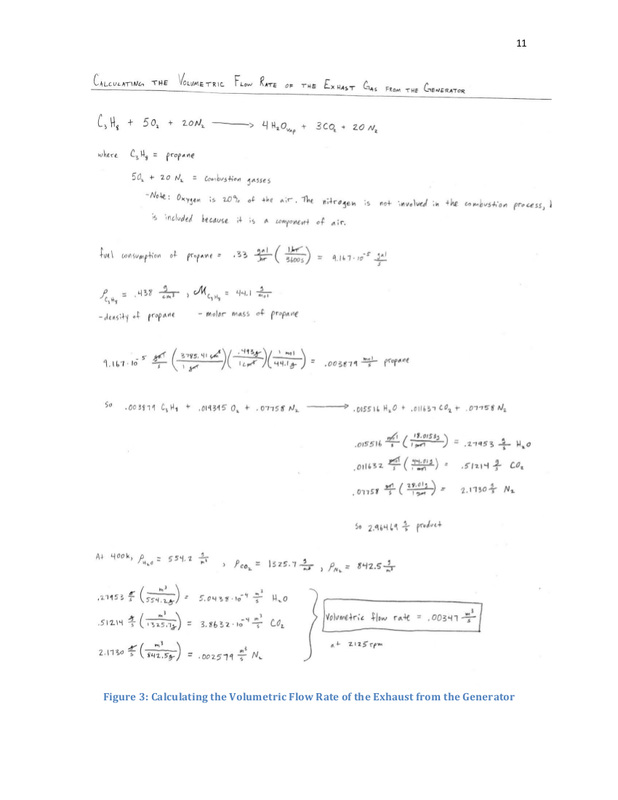 11
CALCULATING THE VOLUMETRIC FLOW RATE OF THE EXHAST GAS FROM THE GENERATOR
C₃H₈ + 5O₂ + 20N₂ ⟶ 4H₂O_vap + 3CO₂ + 20N₂
where C₃H₈ = propane
5O₂ + 20N₂ = combustion gasses
-Note: Oxygen is 20% of the air. The nitrogen is not involved in the combustion process,
is included because it is a component of air.
fuel consumption of propane = .33 gal/hr (1hr/3600s) = 9.167·10⁻⁵ gal/s
ρ_C₃H₈ = .438 g/cm³ , M_C₃H₈ = 44.1 g/mol
-density of propane -molar mass of propane
9.167·10⁻⁵ gal/s (3785.41cm³/1 gal)(.493g/1cm³)(1 mol/44.1g) = .003879 mol/s propane
So .003879 C₃H₈ + .019395 O₂ + .07758 N₂ ⟶ .015516 H₂O + .011637 CO₂ + .07758 N₂
.015516 mol/s (18.0153g/1 mol) = .27953 g/s H₂O
.011632 mol/s (44.01g/1 mol) = .51214 g/s CO₂
.07758 mol/s (28.01g/1 mol) = 2.1730 g/s N₂
So 2.96469 g/s product
At 400k, ρ_H₂O = 554.2 g/m³ , ρ_CO₂ = 1325.7 g/m³ , ρ_N₂ = 842.5 g/m³
.27953 g/s (m³/554.2g) = 5.0438·10⁻⁴ m³/s H₂O
.51214 g/s (m³/1325.7g) = 3.8632·10⁻⁴ m³/s CO₂
2.1730 g/s (m³/842.5g) = .002579 m³/s N₂
Volumetric flow rate = .00347 m³/s
at 2125rpm
Figure 3: Calculating the Volumetric Flow Rate of the Exhaust from the Generator